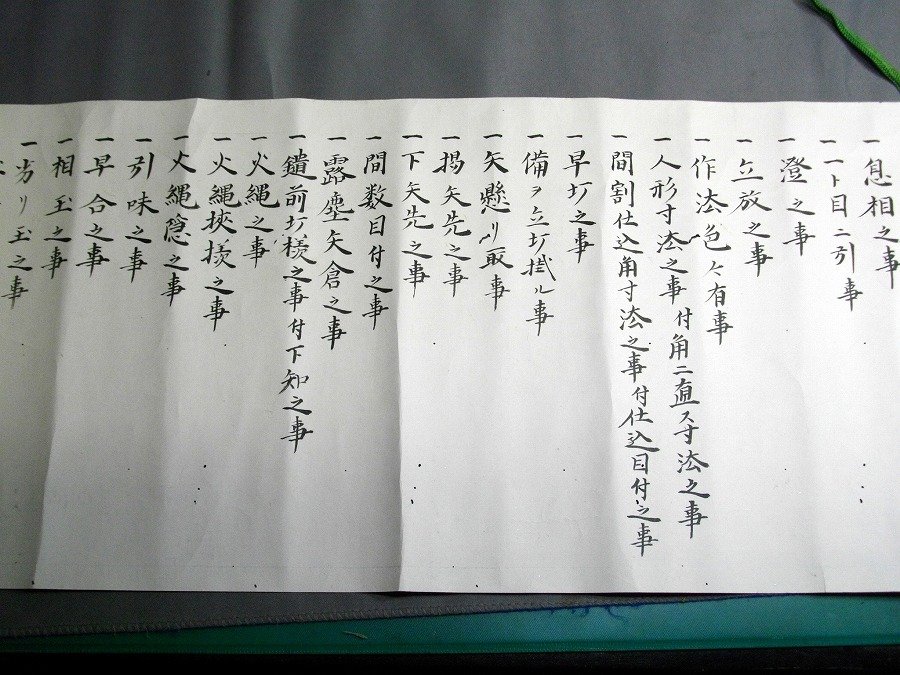 一息相之事
一一ト目ニ引事
一澄之事
一立放之事
一作法色々有事
一人形寸法之事付角ニ直ス寸法之事
一間割仕込角寸法之事付仕込目付之事
一早打之事
一備ヲ立打掛ル事
一矢懸リ取事
一揚矢先之事
一下矢先之事
一間数目付之事
一露塵矢倉之事
一鑓前打様之事付下知之事
一火縄之事
一火縄挟様之事
一火縄隠之事
一引味之事
一早合之事
一相玉之事
一劣リ玉之事